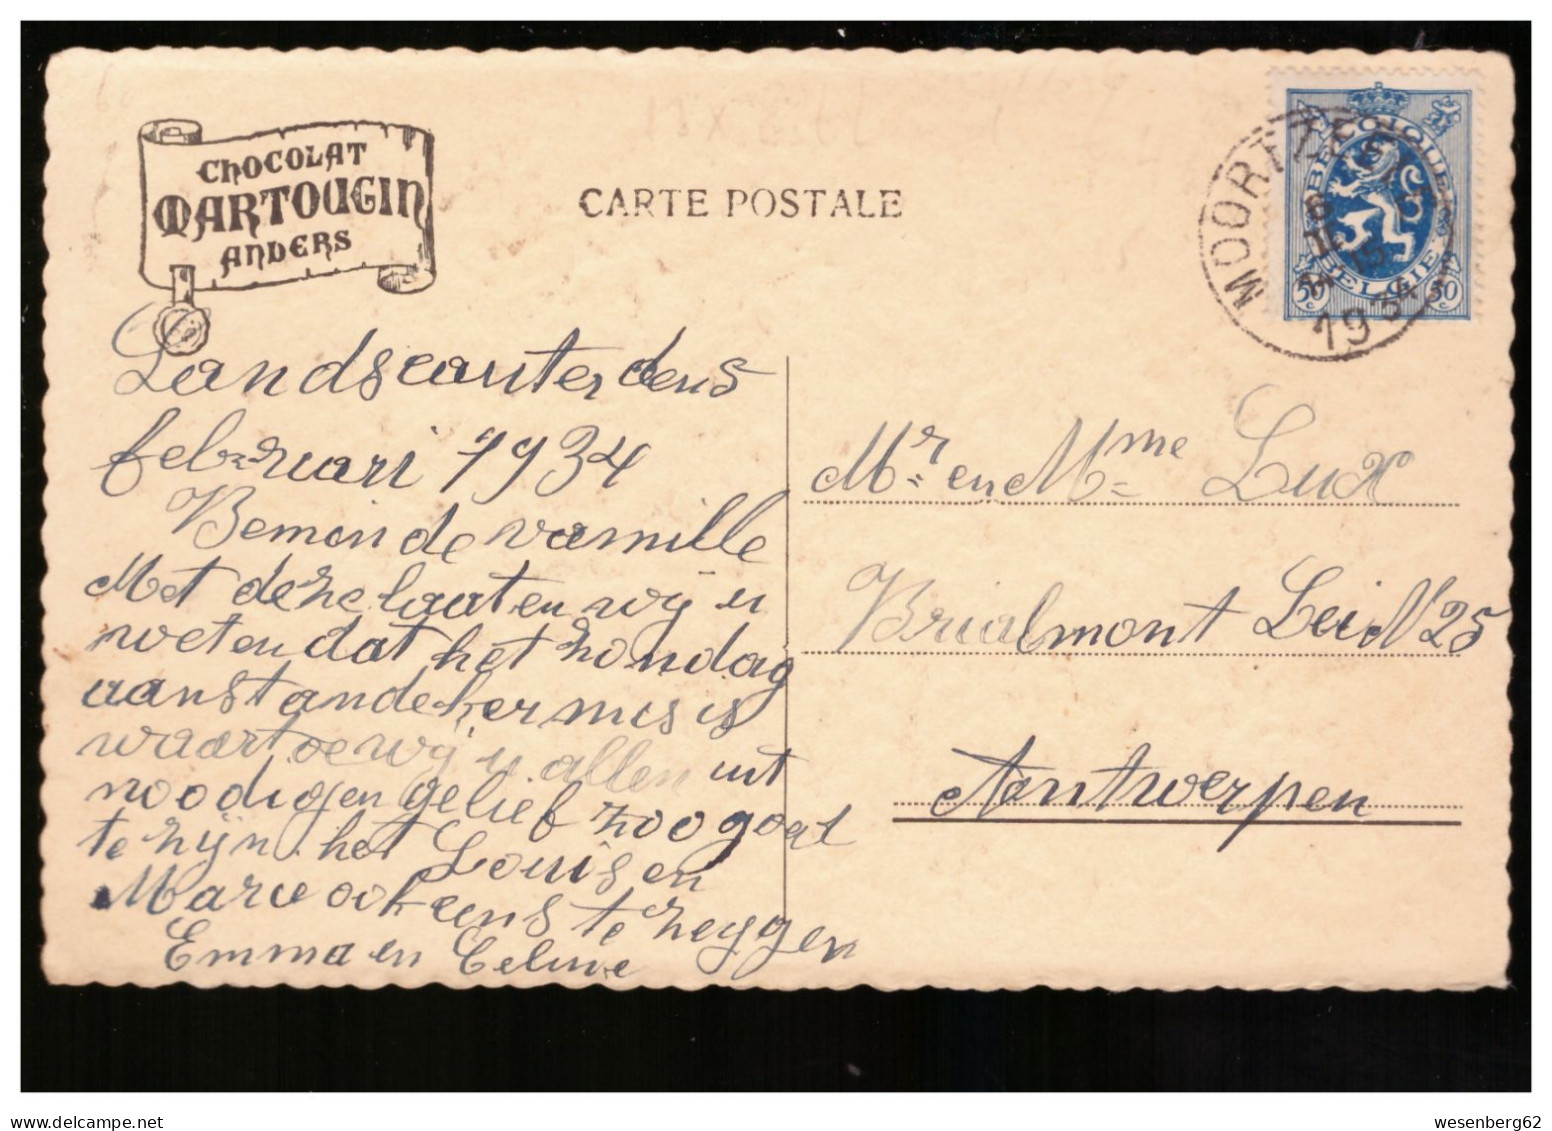 CHOCOLAT
MARTOUGIN
ANVERS
CARTE POSTALE
BELGIQUE
BELGIE
50 c 50 c
MOORTZEELE
6
II
15
1934
Landscauter den 5
februari 1934
Beminde vamille
Met deze laaten wij u
weten dat het zondag
aanstande kermis is
waartoe wij u allen uit
noodigen gelief zoo goed
te zijn het Louis en
Marie ook eens te zeggen
Emma en Celine
Mr. en Mme Lux
Brialmont Lei N 25
Aantwerpen
wesenberg62